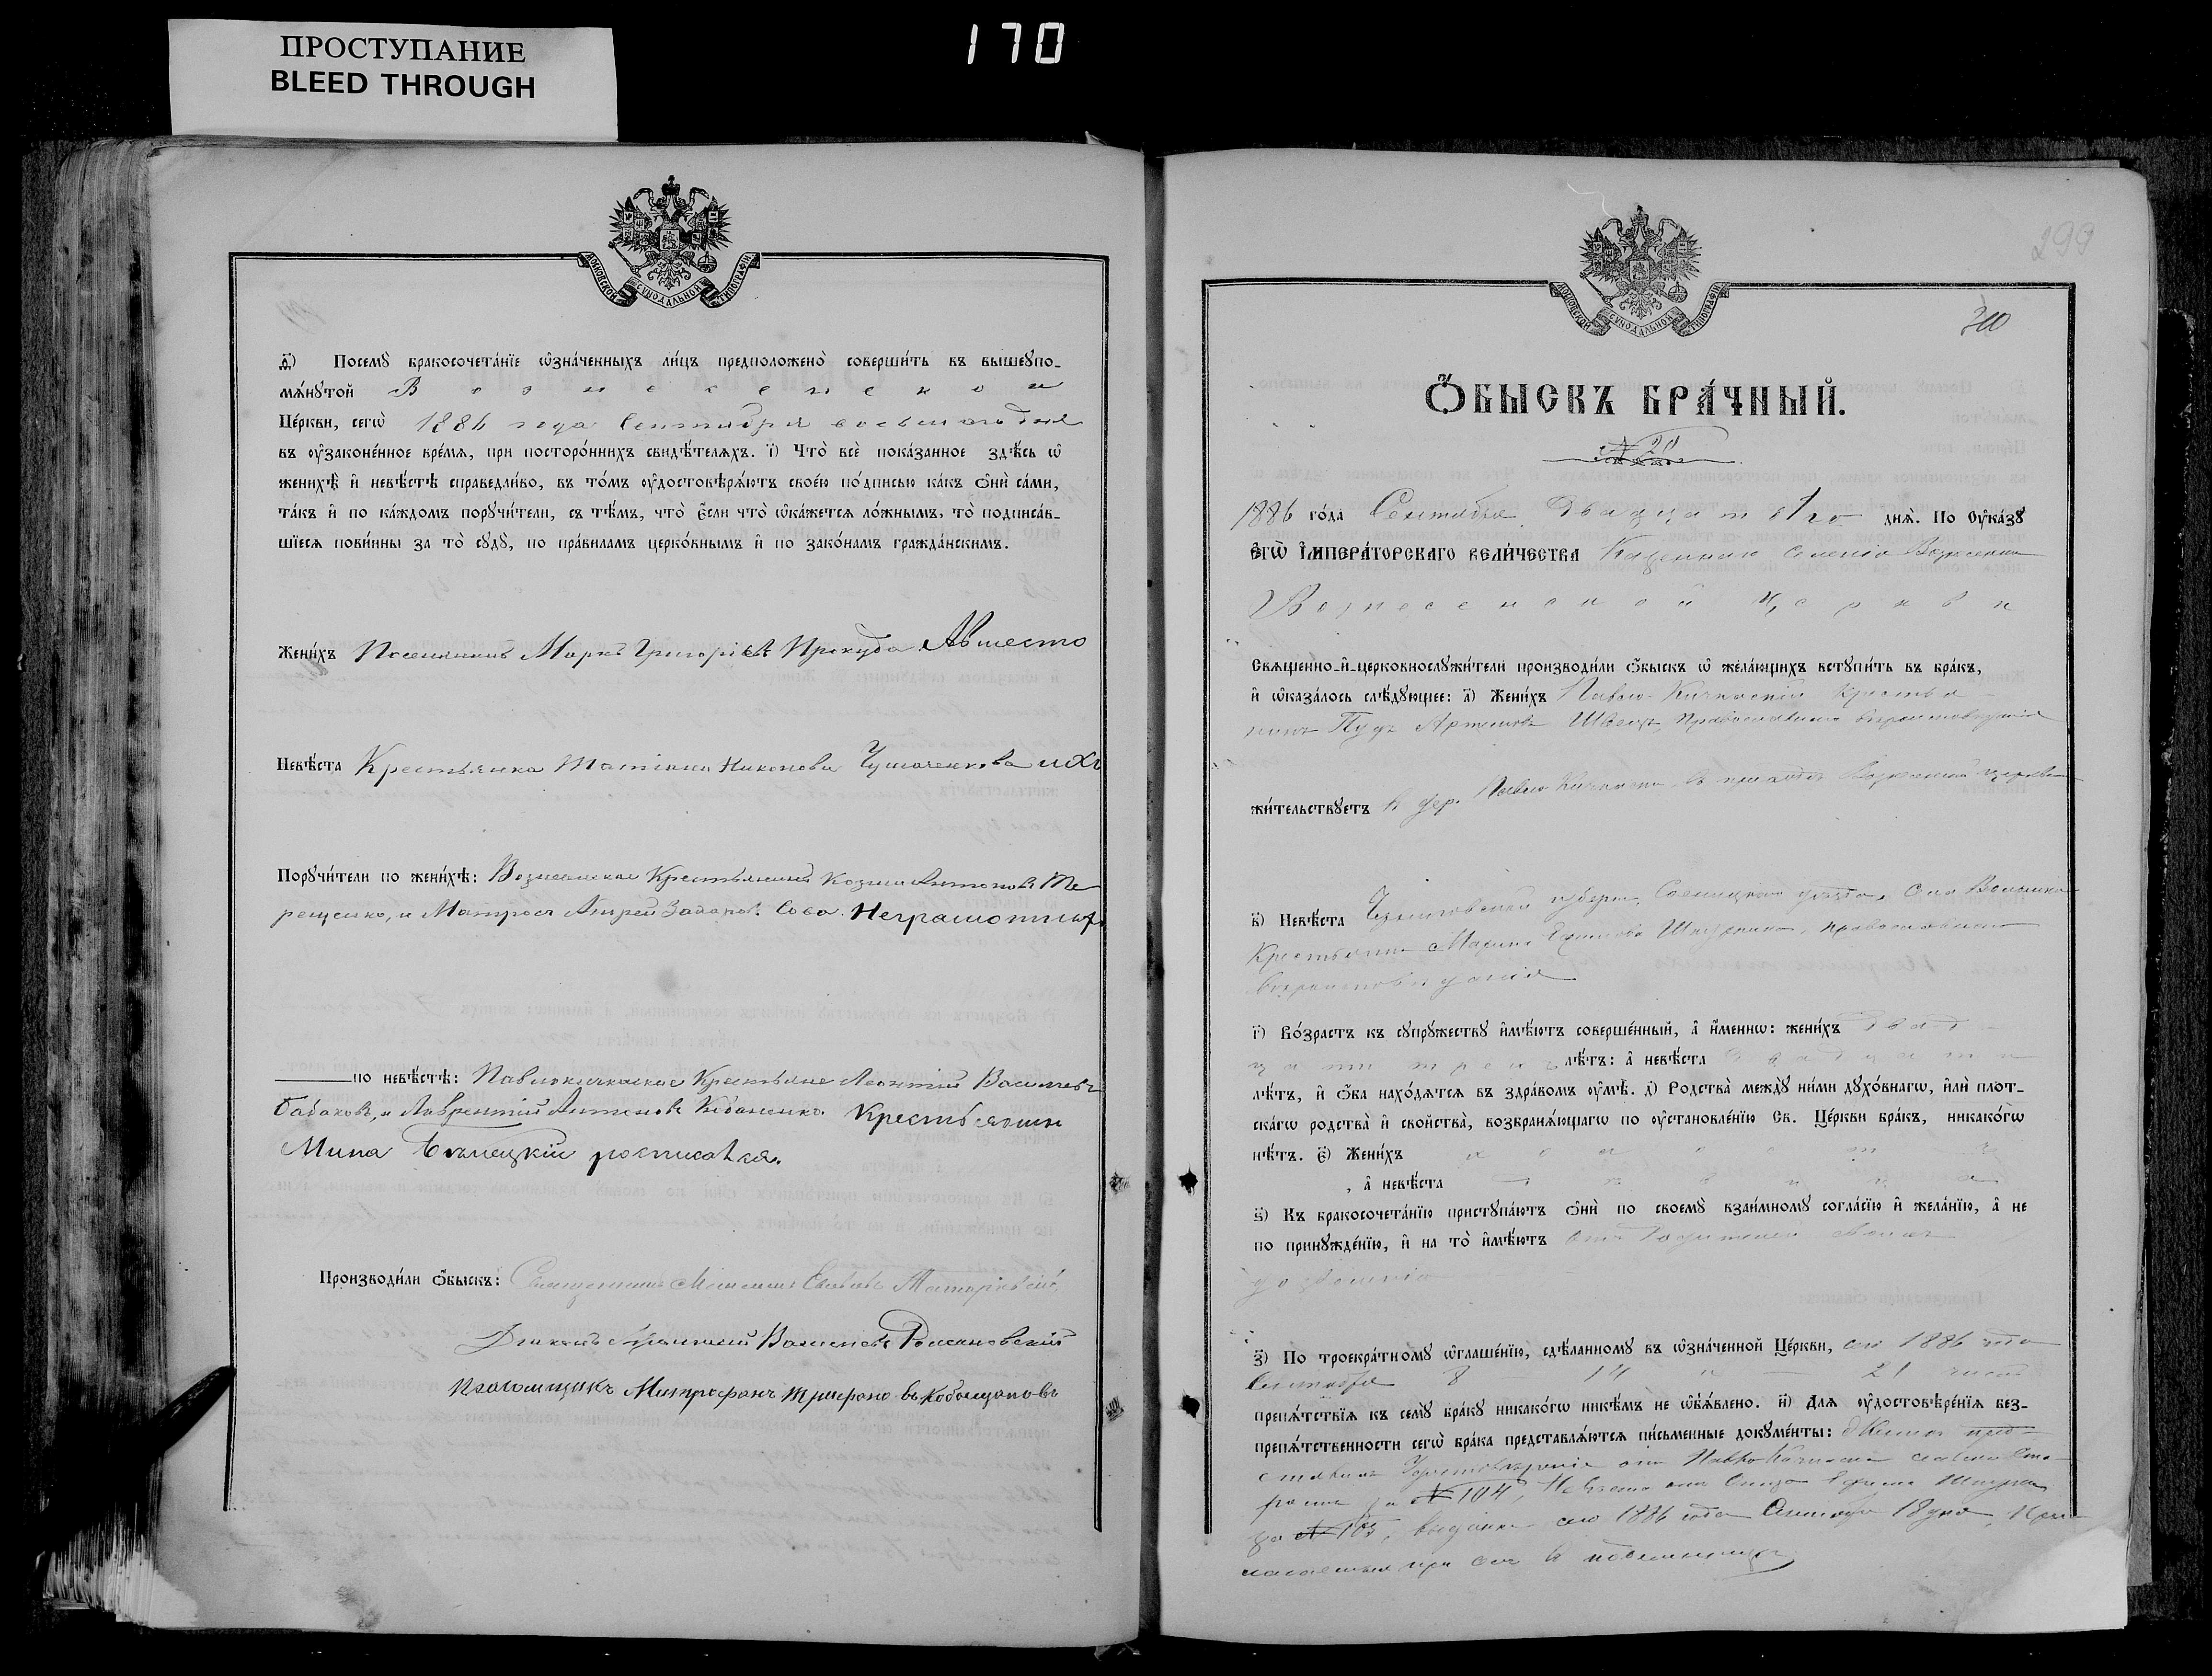 ПРОСТУПАНИЕ
BLEED THROUGH
170
МОСКОВСКОЙ СѴНОДАЛЬНОЙ ТИПОГРАФІИ
ѳ҃) Посемꙋ бракосочета́нїе ѡ҆зна́ченныхъ ли́цъ предположено̀ соверши́ть въ вышеꙋпо-
мѧ́нꙋтой Вознесенской
Це́ркви, сегѡ̀ 1886 года Сентября восьмаго дня
въ ᲂу҆законе́нное вре́мѧ, при посторо́ннихъ свидѣ́телѧхъ. і҃) Что̀ всѐ пока́занное здѣ́сь ѡ҆
женихѣ̀ и҆ невѣ́стѣ справедли́во, въ то́мъ ᲂу҆достовѣрѧ́ютъ свое́ю по́дписью ка́къ ѻ҆нѝ са́ми,
та́къ и҆ по ка́ждомъ порꙋчи́тели, съ тѣ́мъ, что̀ є҆́сли что̀ ѡ҆ка́жетсѧ ло́жнымъ, то̀ подписа́в-
шїесѧ пови́нны за то̀ сꙋдꙋ̀, по пра́виламъ церко́внымъ и҆ по зако́намъ гражда́нскимъ.
Жени́хъ Поселянинъ Маркъ Григорієвъ Прокуда. Авместо
Невѣ́ста Крестьянка Татіана Никонова Чумаченкова ихъ
Порꙋчи́тели по женихѣ̀: Вознесенскае Крестьянинъ Козма Антоновъ Те
рещенко, и Матрос Андрей Захаров. Сова. Неграмотныхъ
по невѣ́стѣ: Павлокичкаскае Крестьяне Леонтій Васильевъ
Бабаковъ, и Лаврентій Антоновъ Кабаненко. Крестьянин
Мина Бѣлецкій росписался.
Производи́ли ѻ҆́быскъ: Священникъ
Діаконъ Василіевъ Романовскій
Псаломщикъ Митрофанъ Трифоновъ
299
300
МОСКОВСКОЙ СѴНОДАЛЬНОЙ ТИПОГРАФІИ
Ѻ҆́БЫСКЪ БРА́ЧНЫЙ.
№ 20
1886 го́да Сентября двадцать 1го днѧ̀. По Оу҆ка́зꙋ
Є҆гѡ̀ І҆мпера́торскагѡ Вели́чества Казенная селенія
Вознесенской Церкви
Свѧще́нно-и҆-церковнослꙋжи́тели производи́ли ѻ҆́быскъ ѡ҆ жела́ющихъ встꙋпи́ть въ бра́къ,
и҆ ѡ҆каза́лось слѣ́дꙋющее: а҃) Жени́хъ Павло-Кичкаскій крестья-
нинъ Пудъ Артемовъ Швецъ, Православнаго вѣроисповѣданія
жи́тельствꙋетъ въ дер. Павло-Кичкасъ, въ приходѣ церкви
в҃) Невѣ́ста Черниговской губерніи, Сосницкаго уѣзда, села
Крестьянка Марина Ефимова православнаго
вѣроисповѣданія
г҃) Во́зрастъ къ сꙋпрꙋ́жествꙋ и҆мѣ́ютъ соверше́нный, а҆ и҆́менно: жени́хъ двад
цати трехъ лѣ́тъ: а҆ невѣ́ста двадцати
лѣ́тъ, и҆ ѻ҆́ба нахо́дѧтсѧ въ здра́вомъ ᲂу҆мѣ̀. д҃) Родства̀ междꙋ̀ ни́ми дꙋхо́внагѡ, и҆лѝ пло́т-
скагѡ родства̀ и҆ свойства̀, возбранѧ́ющагѡ по ᲂу҆становле́нїю Св. Це́ркви бра́къ, никако́гѡ
нѣ́тъ. є҃) Жени́хъ холостъ
, а҆ невѣ́ста дѣвица
ѕ҃) Къ бракосочета́нїю пристꙋпа́ютъ ѻ҆нѝ по своемꙋ̀ взаи́мномꙋ согла́сїю и҆ жела́нїю, а҆ не
по принꙋжде́нїю, и҆ на то̀ и҆мѣ́ютъ отъ Родителей своихъ
дозволеніе
з҃) По троекра́тномꙋ ѡ҆глаше́нїю, сдѣ́ланномꙋ въ ѡ҆зна́ченной Це́ркви, сего 1886 года
Сентября 8 14 и 21 числъ
препѧ́тствїѧ къ семꙋ̀ бра́кꙋ никако́гѡ никѣ́мъ не ѡ҆б̾ѧ́влено. и҃) Длѧ̀ ᲂу҆достовѣре́нїѧ без-
препѧ́тственности сегѡ̀ бра́ка представлѧ́ютсѧ пи́сьменные докꙋме́нты: Женихъ пред-
ставилъ Удостовѣреніе отъ Павло Кичкаса сельск. Ста-
росты за № 104, Невѣста отъ Отца Ефима
за № 103, выданные сего 1886 года Сентября 18 дня. При-
лагаемыя при семъ въ подлинникѣ.